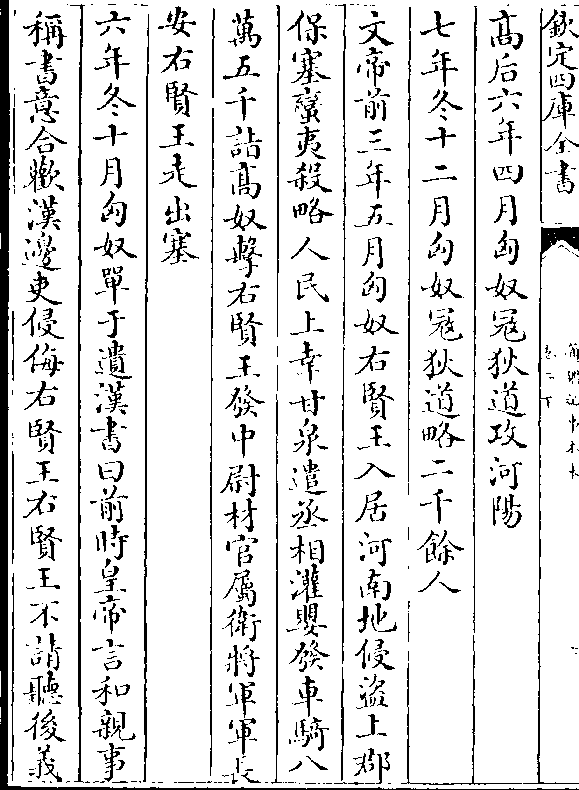 欽定四庫全書
髙后六年四月匈奴冦狄道攻河陽
七年冬十二月匈奴冦狄道略二千餘人
文帝前三年五月匈奴右賢王入居河南地侵盜上郡
保塞蠻夷殺略人民上幸甘泉遣丞相灌嬰發車騎八
萬五千詣髙奴擊右賢王發中尉材官屬衛將軍軍長
安右賢王走出塞
六年冬十月匈奴單于遺漢書曰前時皇帝言和親事
稱書意合歡漢邊吏侵侮右賢王右賢王不請聽後義